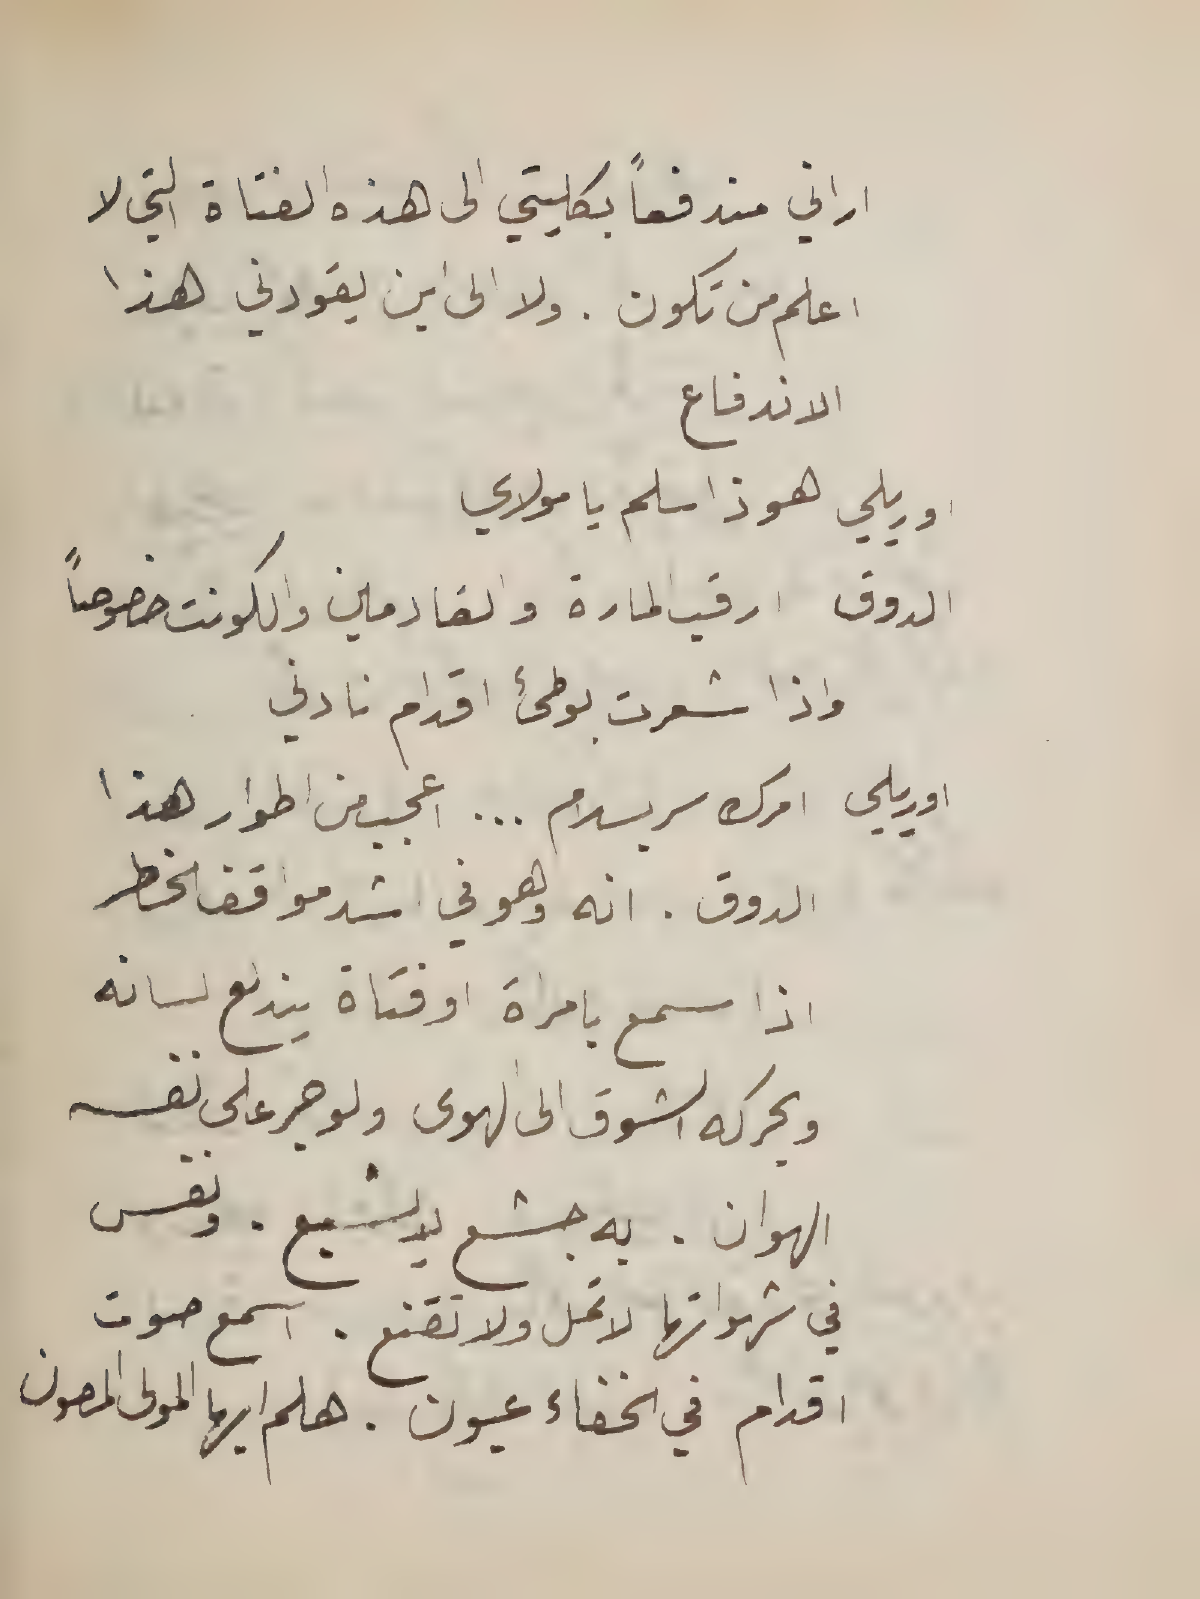 اراني مندفعاً بكليتي الى هذه الفتاة التي لا
اعلم من تكون . ولا الى اين يقودني هذا
الاندفاع
اوريلي هوذا سلم يا مولاي
الدوق ارقب المارة والقادمين والكونت خصوصاً
واذا شعرت بوطئ اقدام نادني
اوريلي امرك سر بسلام ... اعجب من اطوار هذا
الدوق . انه وهو في اشد مواقف الخطر
اذا سمع بامراة او فتاة يندلع لسانه
ويحركه الشوق الى الهوى ولو جر على نفسه
الهوان . به جشع لا يشبع . ونفس
في شهواتها لا تمل ولا تقنع . اسمع صوت
اقدام في الخفاء عيون . هلم ايها المولى المصون